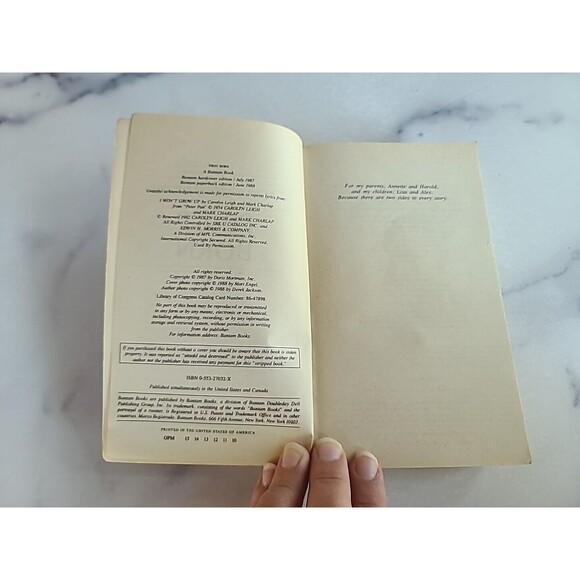 FIRST BORN
A Bantam Book
Bantam hardcover edition / July 1987
Bantam paperback edition / June 1988
Grateful acknowledgement is made for permission to reprint lyrics from:
I WON'T GROW UP by Carolyn Leigh and Mark Charlap
from "Peter Pan" © 1954 CAROLYN LEIGH
and MARK CHARLAP
© Renewed 1982 CAROLYN LEIGH and MARK CHARLAP
All Rights Controlled by SBK U CATALOG INC. and
EDWIN H. MORRIS & COMPANY.
A Division of MPL Communications, Inc.
International Copyright Secured. All Rights Reserved.
Used By Permission.
All rights reserved.
Copyright © 1987 by Doris Mortman, Inc.
Cover photo copyright © 1988 by Mort Engel.
Author photo copyright © 1988 by Derek Jackson.
Library of Congress Catalog Card Number: 86-47898
No part of this book may be reproduced or transmitted
in any form or by any means, electronic or mechanical,
including photocopying, recording, or by any information
storage and retrieval system, without permission in writing
from the publisher.
For information address: Bantam Books.
If you purchased this book without a cover you should be aware that this book is stolen
property. It was reported as "unsold and destroyed" to the publisher and neither the
author nor the publisher has received any payment for this "stripped book."
ISBN 0-553-27032-X
Published simultaneously in the United States and Canada
Bantam Books are published by Bantam Books, a division of Bantam Doubleday Dell
Publishing Group, Inc. Its trademark, consisting of the words "Bantam Books" and the
portrayal of a rooster, is Registered in U.S. Patent and Trademark Office and in other
countries. Marca Registrada. Bantam Books, 666 Fifth Avenue, New York, New York 10103.
PRINTED IN THE UNITED STATES OF AMERICA
OPM 15 14 13 12 11 10
For my parents, Annette and Harold,
and my children, Lisa and Alex;
Because there are two sides to every story.